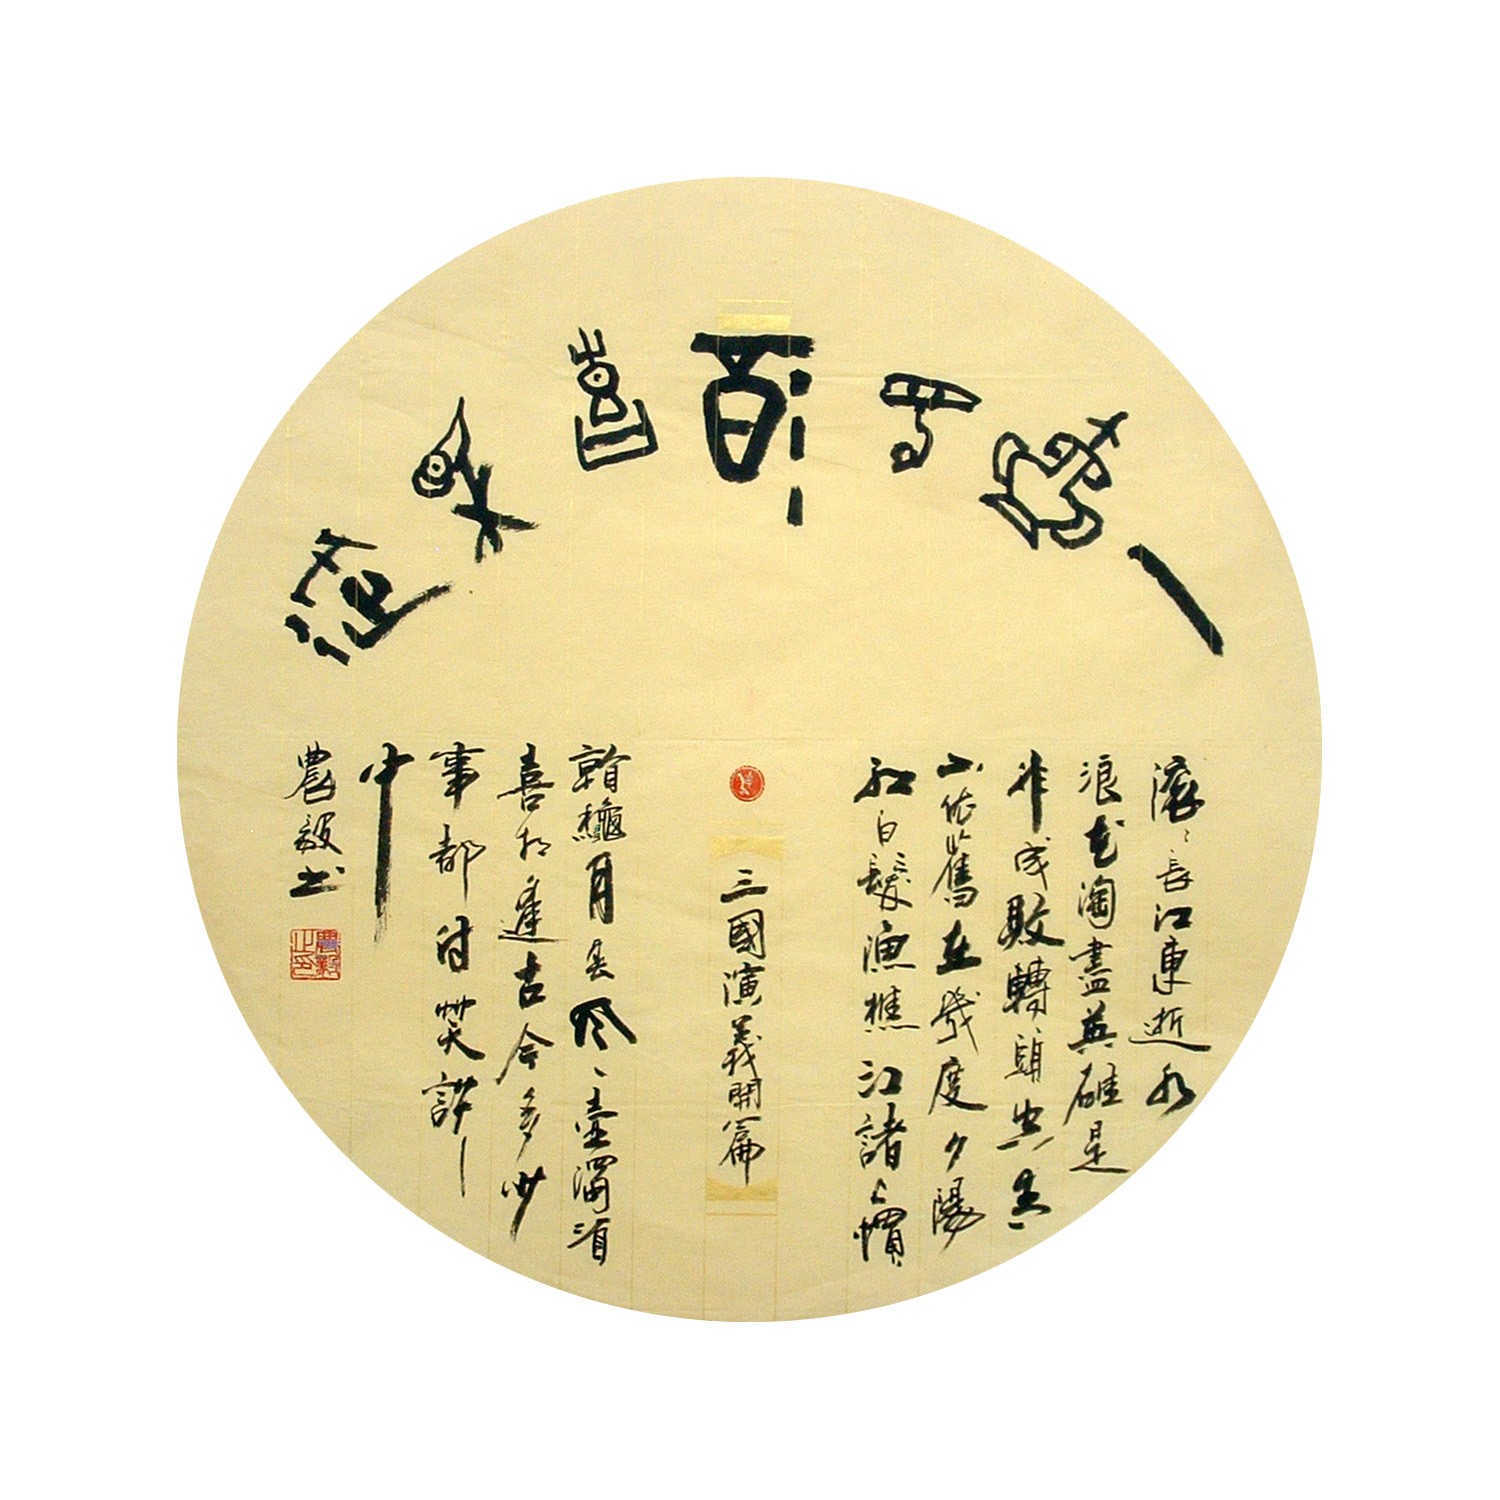 滾〻長江東逝水
浪花淘盡英雄是
非成敗轉頭空青
山依舊在幾度夕陽
紅白髮漁樵江諸上慣
三國演義開篇
看龝月春風一壺濁酒
喜相逢古今多少
事都付笑談
中
農毅書
農毅之印